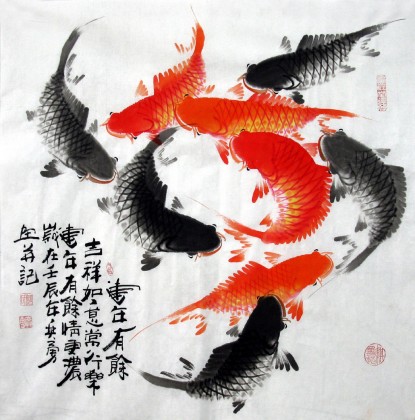 年年有餘
吉祥如意常行樂
年年有餘情更濃
歲在壬辰年英勇
并記